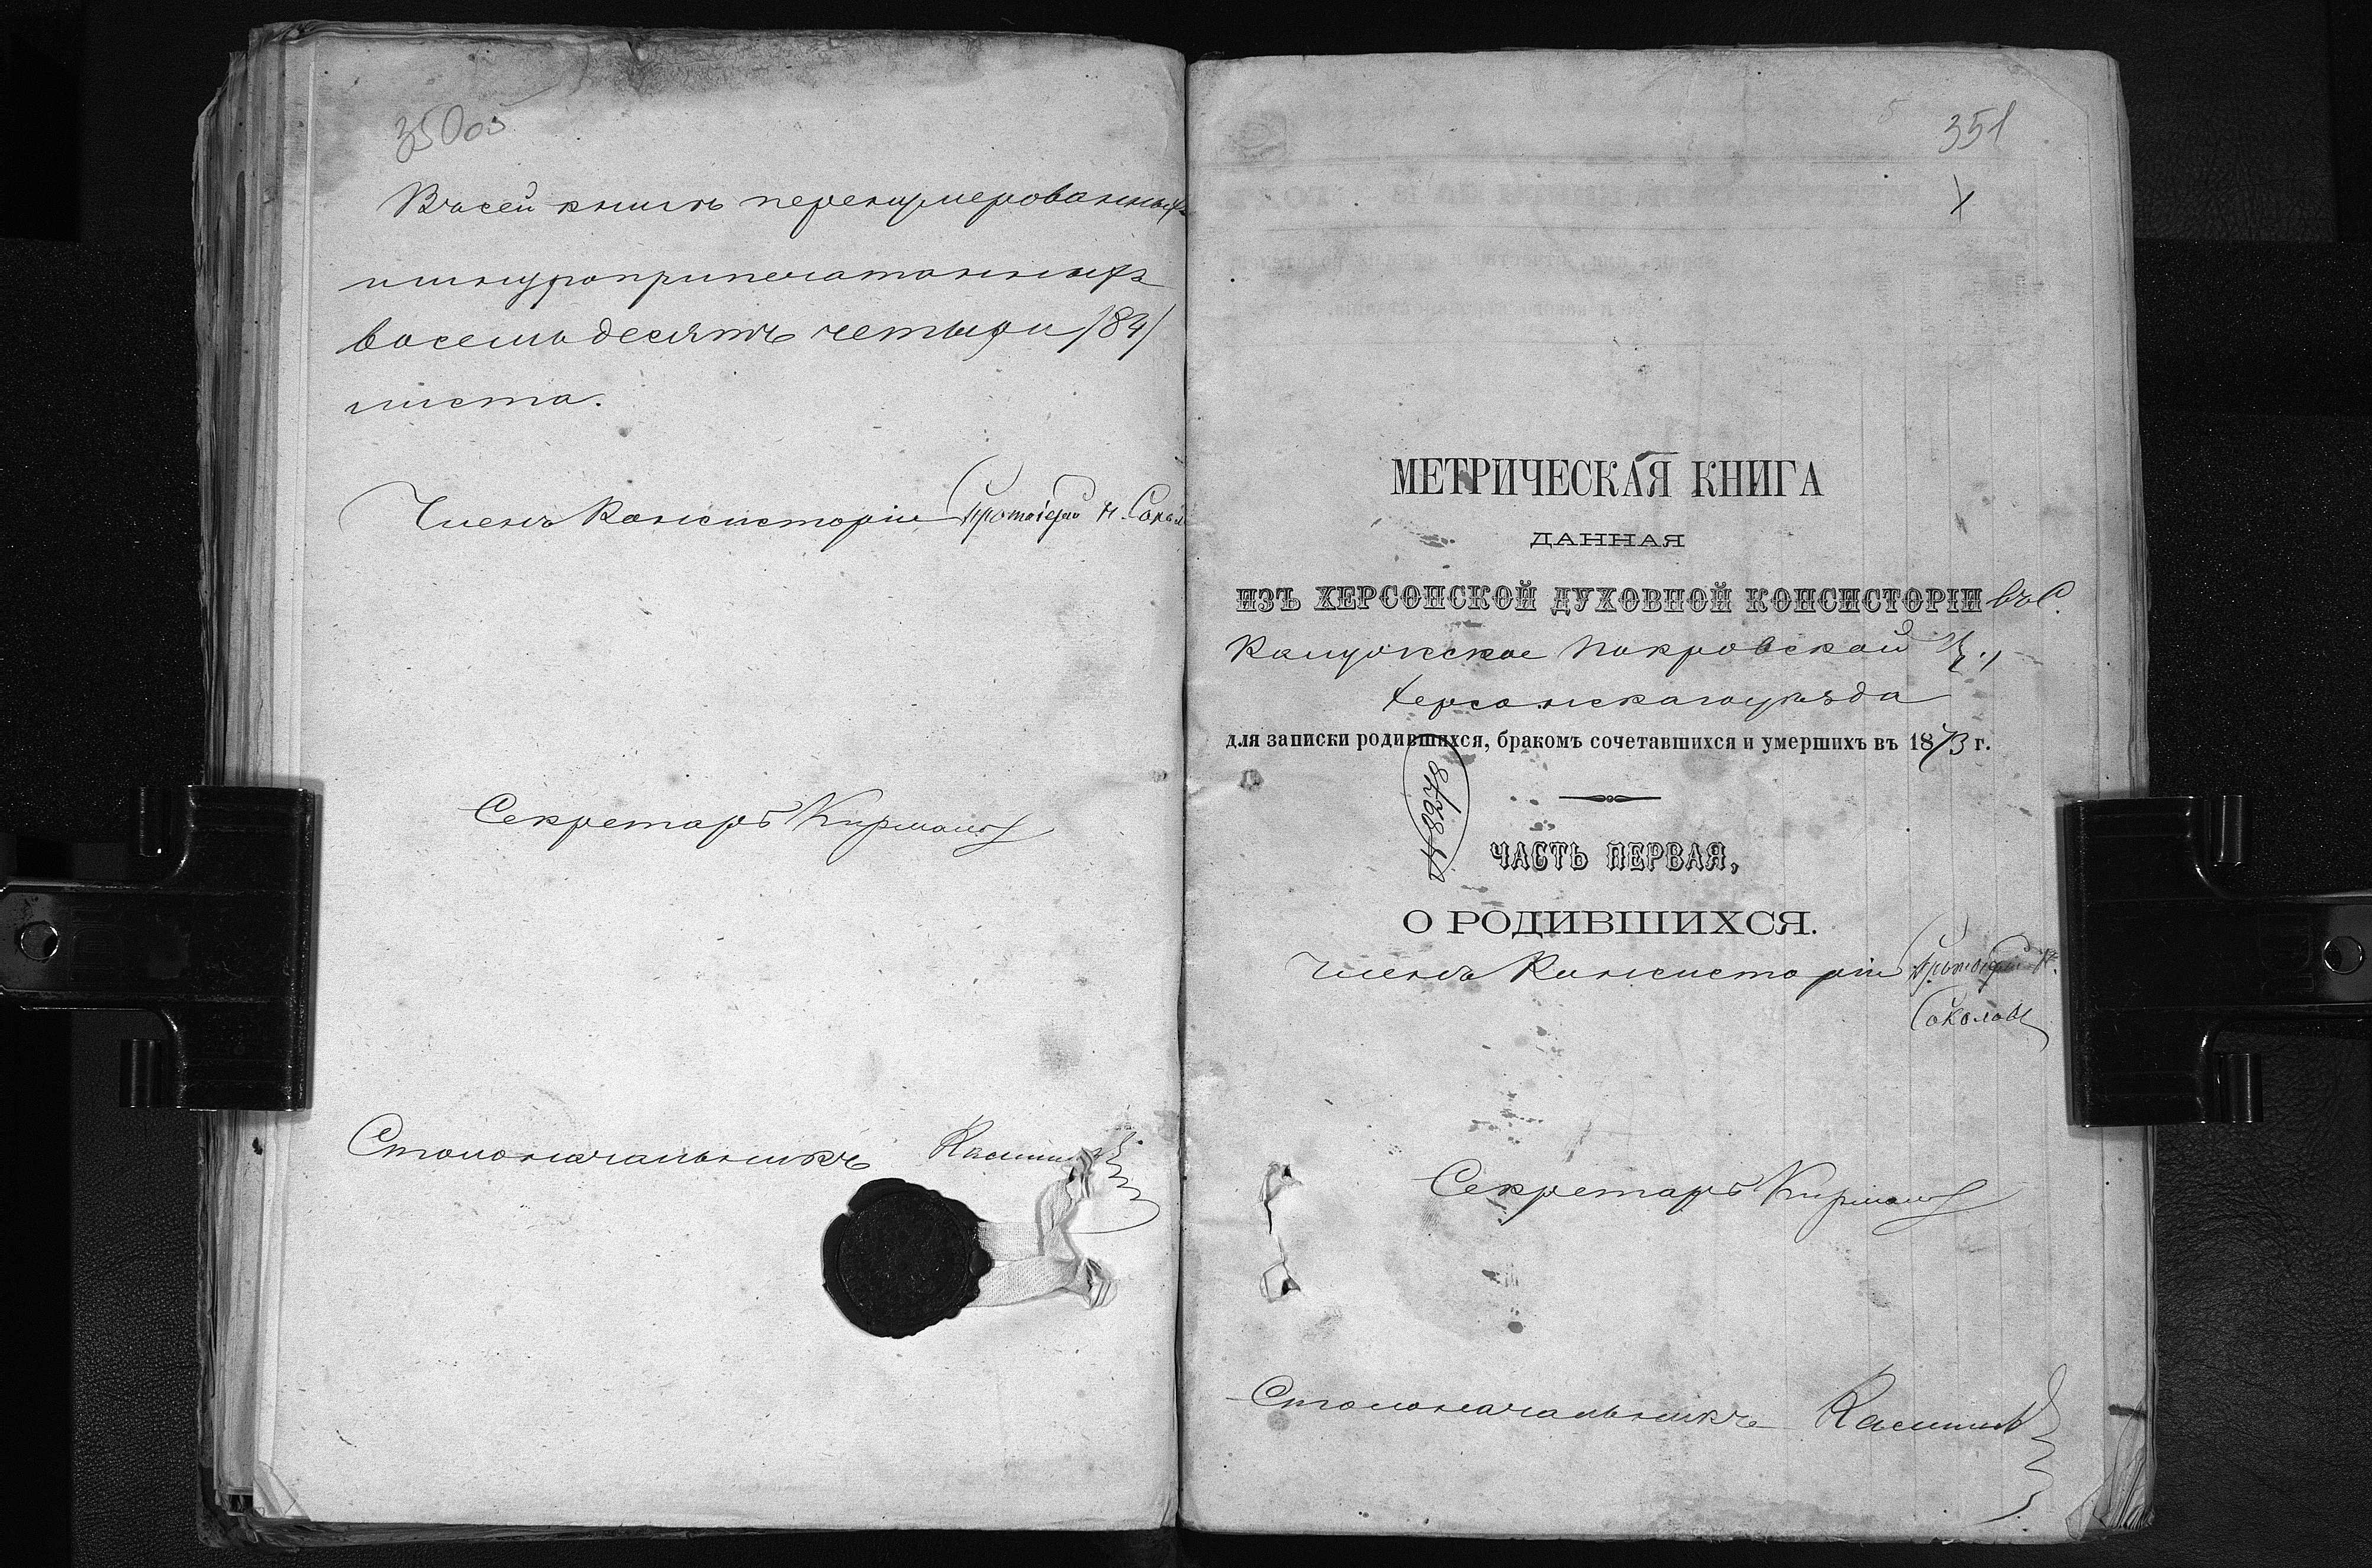 350об
Въ сей книгѣ перенумерованныхъ
и шнуроприпечатанныхъ
восемьдесятъ четыри /84/
листа.
Членъ Консисторіи Протоіерей
Секретарь
Столоначальникъ
351
МЕТРИЧЕСКАЯ КНИГА
ДАННАЯ
ИЗЪ ХЕРСОНСКОЙ ДУХОВНОЙ КОНСИСТОРІИ въ С.
Калужское Покровской Ц.,
Херсонскаго уѣзда
для записки родившихся, бракомъ сочетавшихся и умершихъ въ 1873 г.
ЧАСТЬ ПЕРВАЯ,
О РОДИВШИХСЯ.
Членъ Консисторіи Протоіерей
Соколовъ
Секретарь
Столоначальникъ